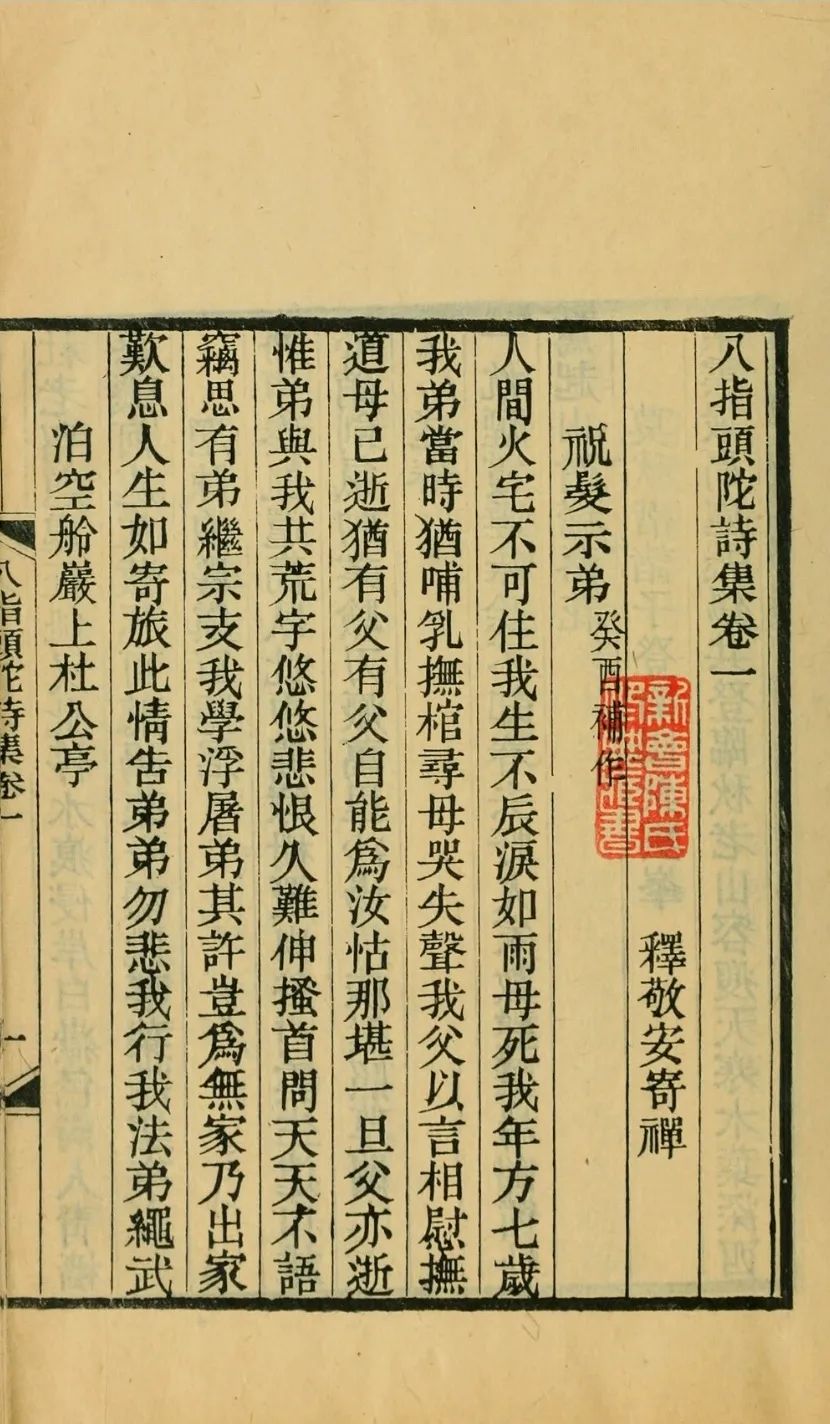 八指頭陀詩集卷一
釋敬安寄禪
祝髮示弟 癸酉補作
新會陳氏
人間火宅不可住我生不辰淚如雨母死我年方七歲
我弟當時猶哺乳撫棺尋母哭失聲我父以言相慰撫
道母已逝猶有父有父自能爲汝怙那堪一旦父亦逝
惟弟與我共荒宇悠悠悲恨久難伸搔首問天天不語
竊思有弟繼宗支我學浮屠弟其許豈爲無家乃出家
歎息人生如寄旅此情告弟弟勿悲我行我法弟繩武
泊空舲巖上杜公亭
八指頭陀詩集卷一
一